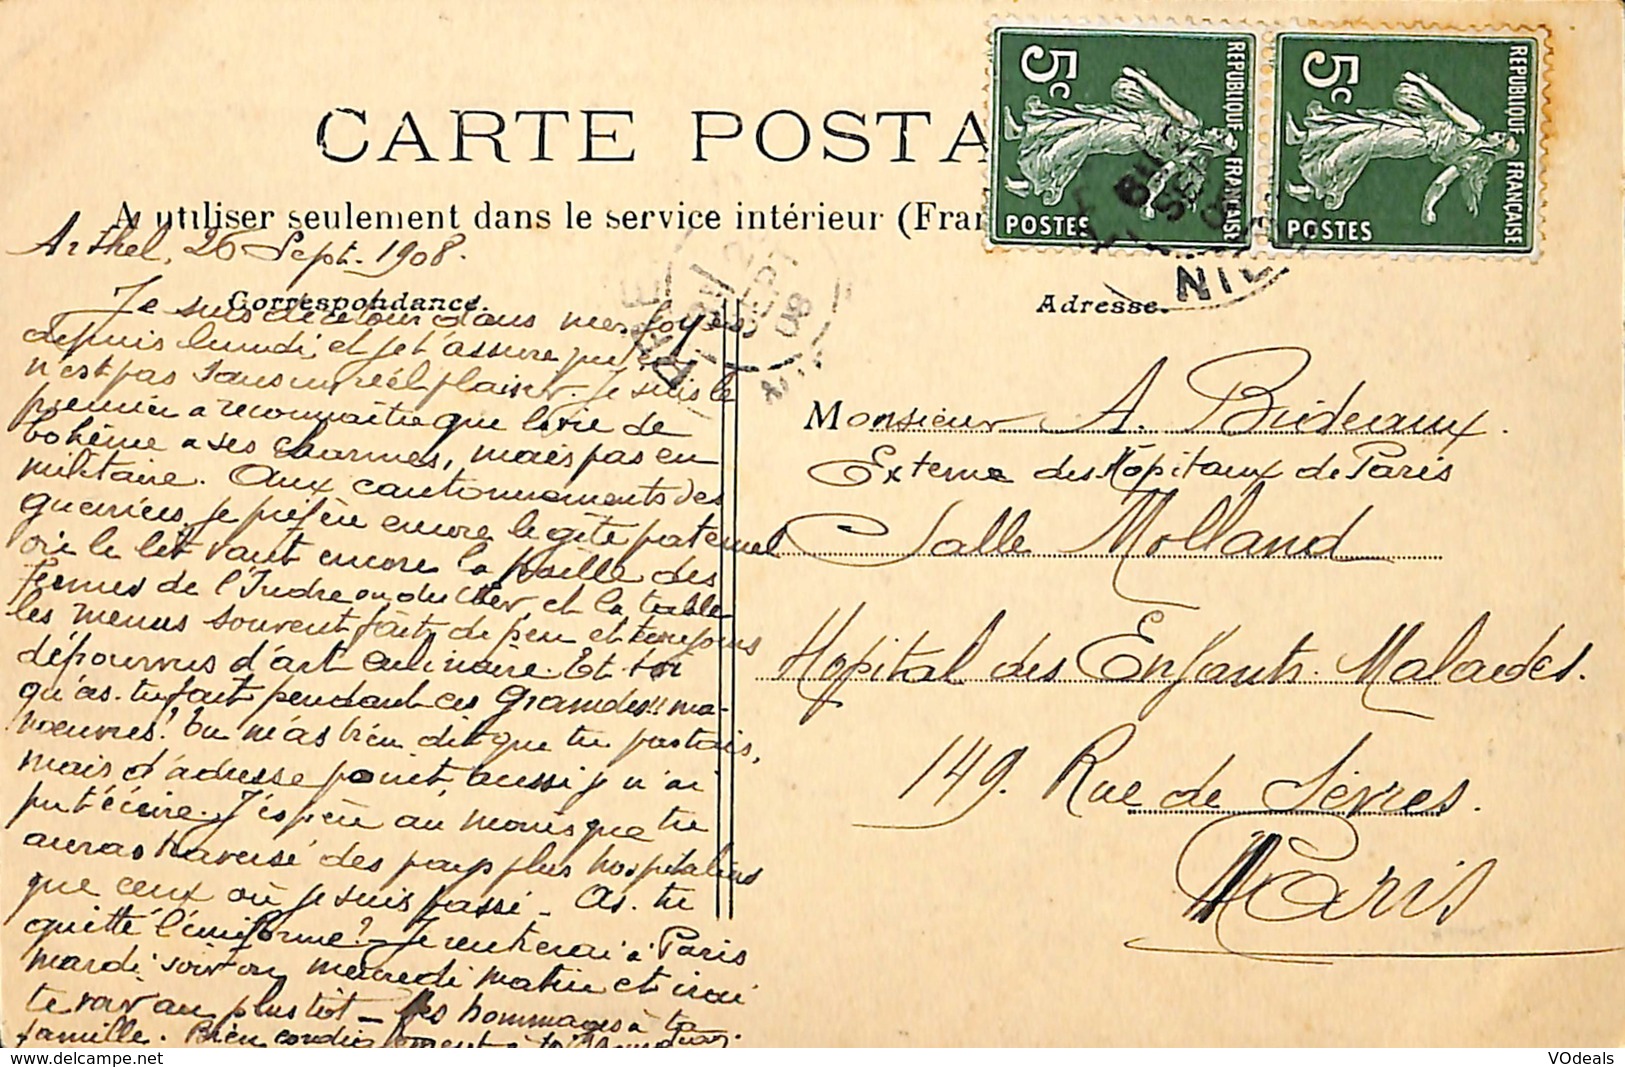 CARTE POSTA
A utiliser seulement dans le service intérieur (Fran
REPUBLIQUE FRANÇAISE
5c
POSTES
REPUBLIQUE FRANÇAISE
5c
POSTES
Arthel, 26 Sept. 1908.
Correspondance.
Adresse.
Je suis de retour dans mes foyers
depuis lundi, et je t'assure que ce
n'est pas sans un réel plaisir. Je suis le
premier a reconnaître que la vie de
bohême a ses charmes, mais pas en
militaire. Aux cantonnements des
guerriers je préfère encore le gîte paternel
où le lit vaut encore la paille des
fermes de l'Indre ou du Cher, et la table
les menus souvent faits de peu et toujours
dépourvus d'art culinaire. Et toi
qu'as-tu fait pendant ces grandes!! ma-
noeuvres? Tu m'as bien dit que tu partais,
mais d'adresse point, aussi je n'ai
pu t'écrire. J'espère au moins que tu
auras traversé des pays plus hospitaliers
que ceux où je suis passé - As-tu
quitté l'uniforme? - Je rentrerai à Paris
mardi soir ou mercredi matin et irai
te voir au plus tôt - Mes hommages à ta
famille. Bien cordialement à toi
Monsieur A. Brideraux.
Externe des Hôpitaux de Paris
Salle Molland
Hopital des Enfants-Malades.
149. Rue de Sèvres.
Paris
NIÈ
08
VOdeals
delcampe.net